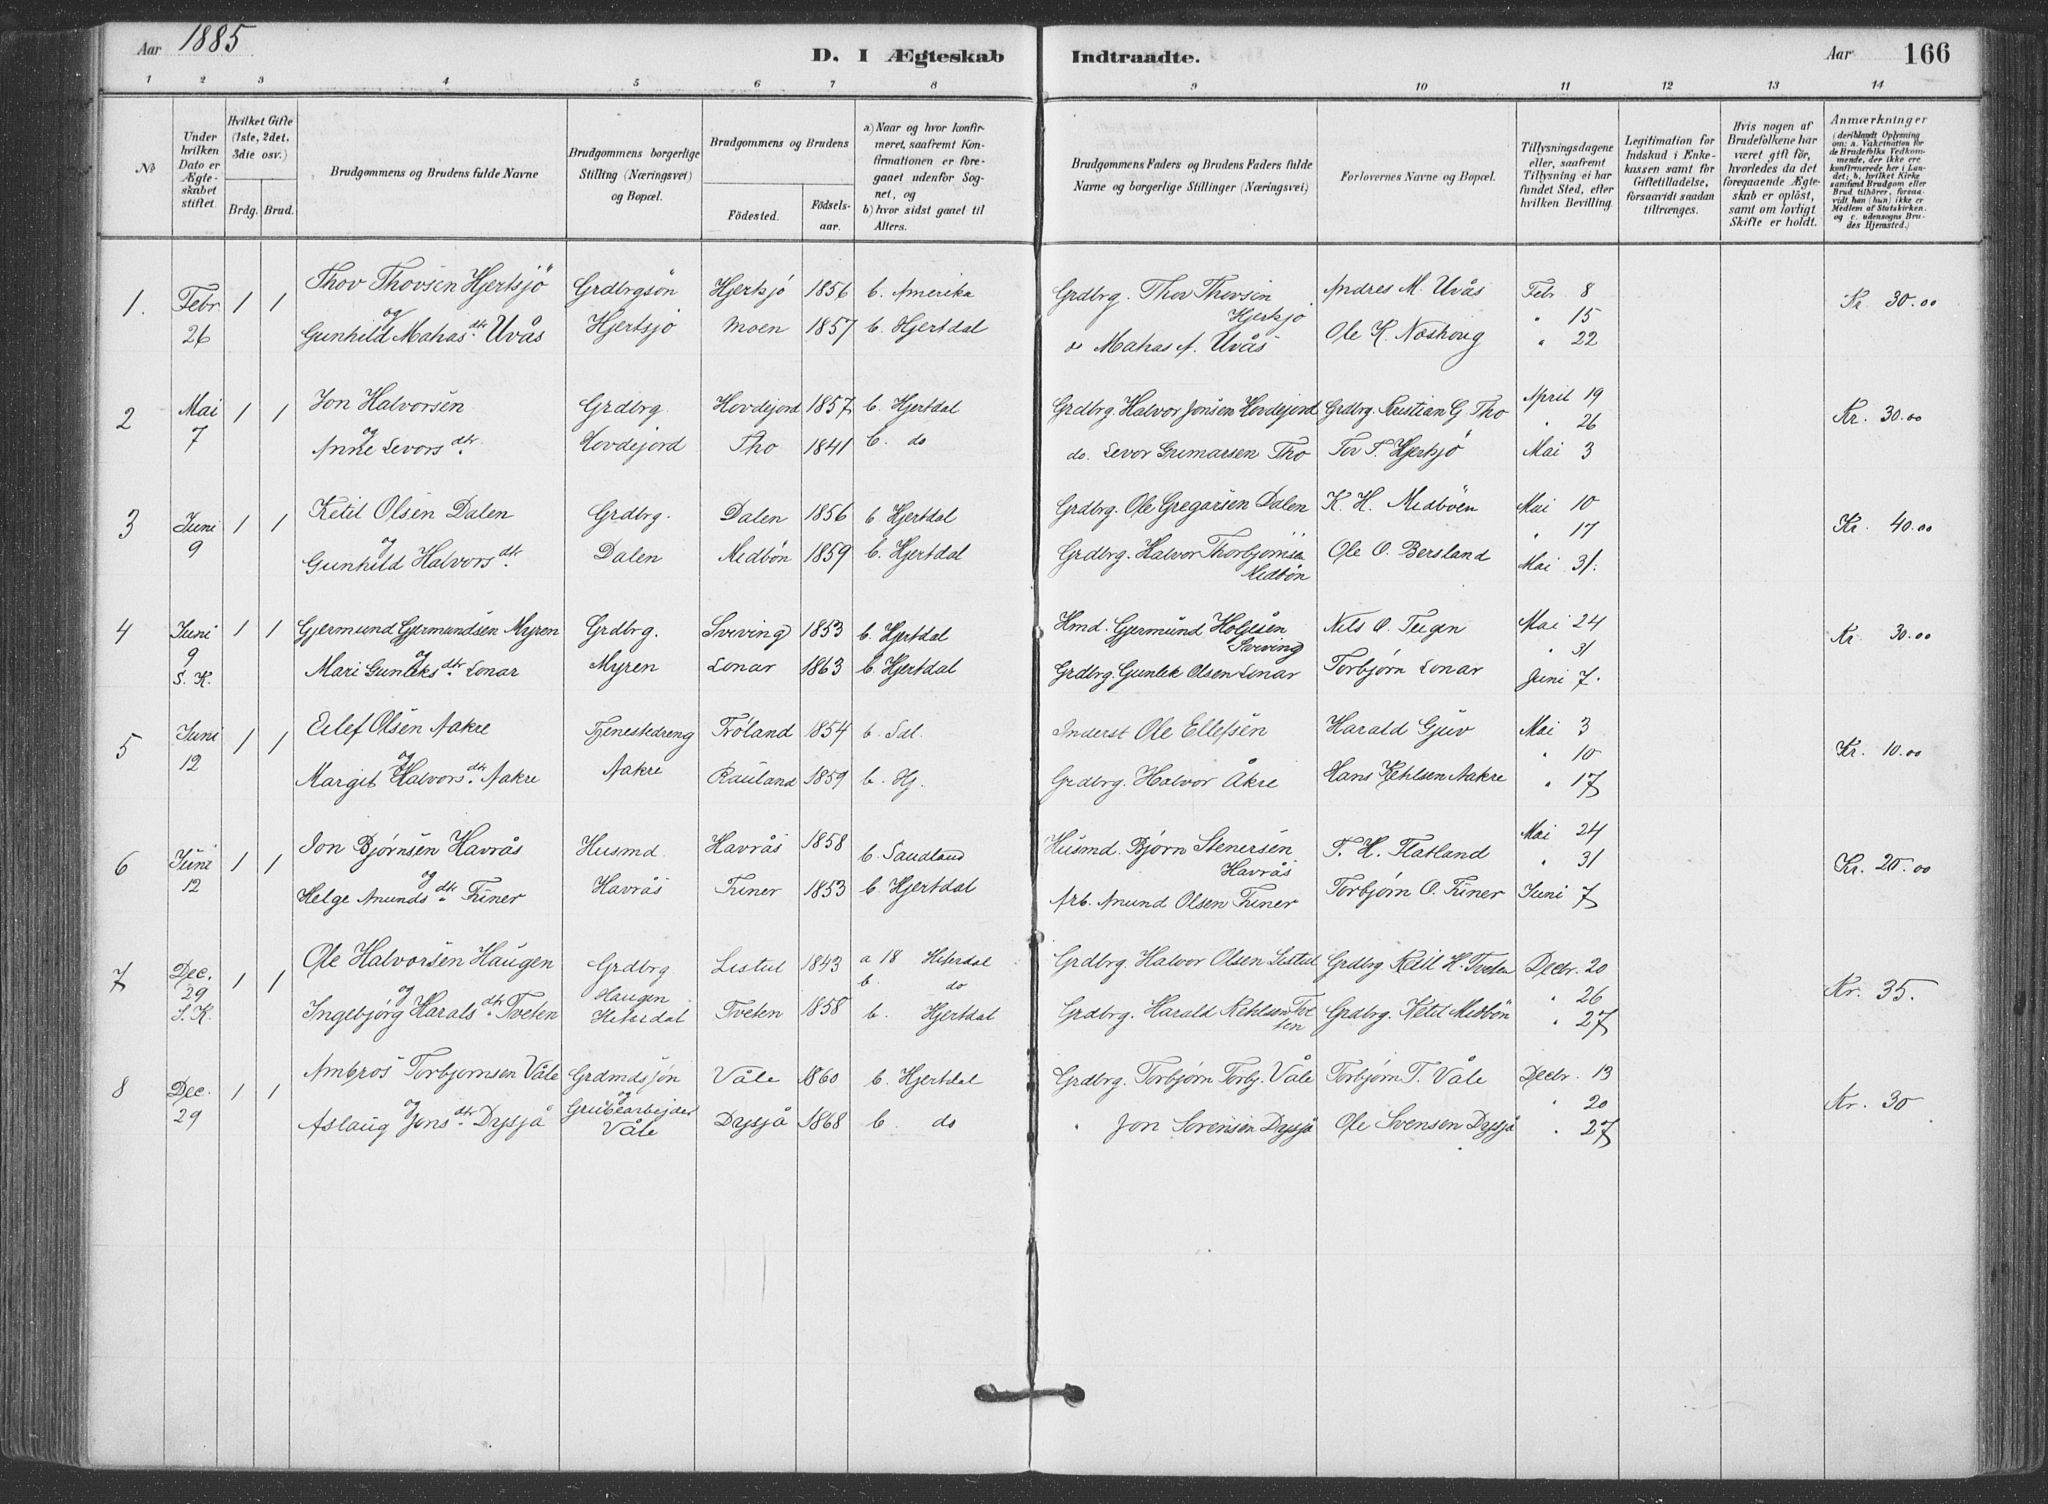 Aar 1885
D. I Ægteskab Indtraadte.
Aar 166
1 2 3 4 5 6 7 8 9 10 11 12 13 14
No.
Under hvilken Dato er Ægteskabet stiftet.
Hvilket Gifte (1ste, 2det, 3die osv.)
Brdg. Brud.
Brudgommens og Brudens fulde Navne
Brudgommens borgerlige Stilling (Næringsvei) og Bopæl.
Brudgommens og Brudens
Fødested. Fødselsaar.
a) Naar og hvor konfirmeret, saafremt Konfirmationen er foregaaet udenfor Sognet, og
b) hvor sidst gaaet til Alters.
Brudgommens Faders og Brudens Faders fulde Navne og borgerlige Stillinger (Næringsvei)
Forlovernes Navne og Bopæl.
Tillysningsdagene eller, saafremt Tillysning ei har fundet Sted, efter hvilken Bevilling.
Legitimation for Indskud i Enkekassen samt for Giftetilladelse, forsaavidt saadan tiltrænges.
Hvis nogen af Brudefolkene har været gift før, hvorledes da det foregaaende Ægteskab er opløst, samt om lovligt Skifte er holdt.
Anmærkninger (deriblandt Oplysning om: a. Vakcination for de Brudefolks Vedkommende, der ikke ere konfirmerede her i Landet; b. hvilket Kirkesamfund Brudgom eller Brud tilhører, forsaavidt han (hun) ikke er Medlem af Statskirken, og c. udensogns Brudes Hjemsted.)
1. Febr 26 1 1 Thov Thovsen Hjertsjö Grdbrgsön Hjertsjö 1856 b. Amerika Grdbrg. Thov Thovsen Hjertsjo Andres M. Uvås Febr 8 Kr. 30.00
" 15
og Gunhild Mahas dtr. Uvås Hjertsjö Moen 1857 b. Hjertdal do Mahas A. Uvås Ole K. Næshoug " 22
2 Mai 7 1 1 Jon Halvorsen Grdbrg. Hovdejord 1857 b. Hjertdal Grdbrg. Halvor Jonsen Hovdejord Grdbrg. Kristian G. Tho April 19 Kr. 30.00
" 26
og Anne Levors dtr. Hovdejord Tho 1841 b. do do. Levor Gunnarsen Tho Tov T. Hjertsjö Mai 3
3 Juni 9 1 1 Ketil Olsen Dalen Grdbrg. Dalen 1856 b Hjertdal Grdbrg. Ole Gregarsen Dalen K. H. Midböen Mai 10 Kr. 40.00
" 17
og Gunhild Halvors dtr. Dalen Midbön 1859 b. Hjertdal Grdbrg. Halvor Thorbjörnsen Midbön Ole O. Bersland Mai 31.
4 Juni 9 S. K. 1 1 Gjermund Gjermundsen Myren Grdbrg. Sveving 1853 b. Hjertdal Hmd. Gjermund Holjesen Sviving Nils O. Teigen Mai 24 Kr. 30.00
" 31
og Mari Gunleks dtr. Lonar Myren Lonar 1863 b. Hjertdal Grdbrg. Gunlek Olsen Lonar Torbjørn Lonar Juni 7.
5 Juni 12 1 1 Eilef Olsen Aakre Tjenestedreng Tröland 1854 b. Sdl. Inderst Ole Ellefsen Harald Gjuv Mai 3 Kr. 10.00
" 10
og Margit Halvors dtr. Aakre Aakre Rauland 1859 b. Hj. Grdbrg. Halvor Åkre Hans Ketilsen Aakre " 17
6 Juni 12 1 1 Jon Bjørnsen Havrås Husmd Havrås 1858 b. Saudland Husmd. Bjørn Stenersen Havrås T. H. Flatland Mai 24 Kr. 20.00
" 31
og Helge Anunds dtr. Tiner Havrås Tiner 1853 b. Hjertdal Arb. Anund Olsen Tiner Torbjørn O. Tiner Juni 7
7 Dec. 29 S. K. 1 1 Ole Halvorsen Haugen Grdbrg Listul 1843 a 18 Hiterdal Grdbrg. Halvor Olsen Listul Grdbrg. Ketil H. Tveten Decbr. 20 Kr. 35.
b. do " 26
og Ingebjørg Harals dtr. Tveten Haugen Hiterdal Tveten 1858 b. Hjertdal Grdbrg. Harald Ketilsen Tveten Grdbrg. Ketil Midbön " 27
8 Dec. 29 1 1 Ambros Torbjornsen Våle Grdmdsjön Våle 1860 b. Hjertdal Grdbrg. Torbjørn Torbj. Våle Torbjørn T. Våle Decbr. 13 Kr. 30
" 20
og Aslaug Jons dtr. Dysjå og Grubearbejder Våle Dysjå 1868 b. do " Jon Sorensen Dysjå Ole Svensen Dysjå " 27